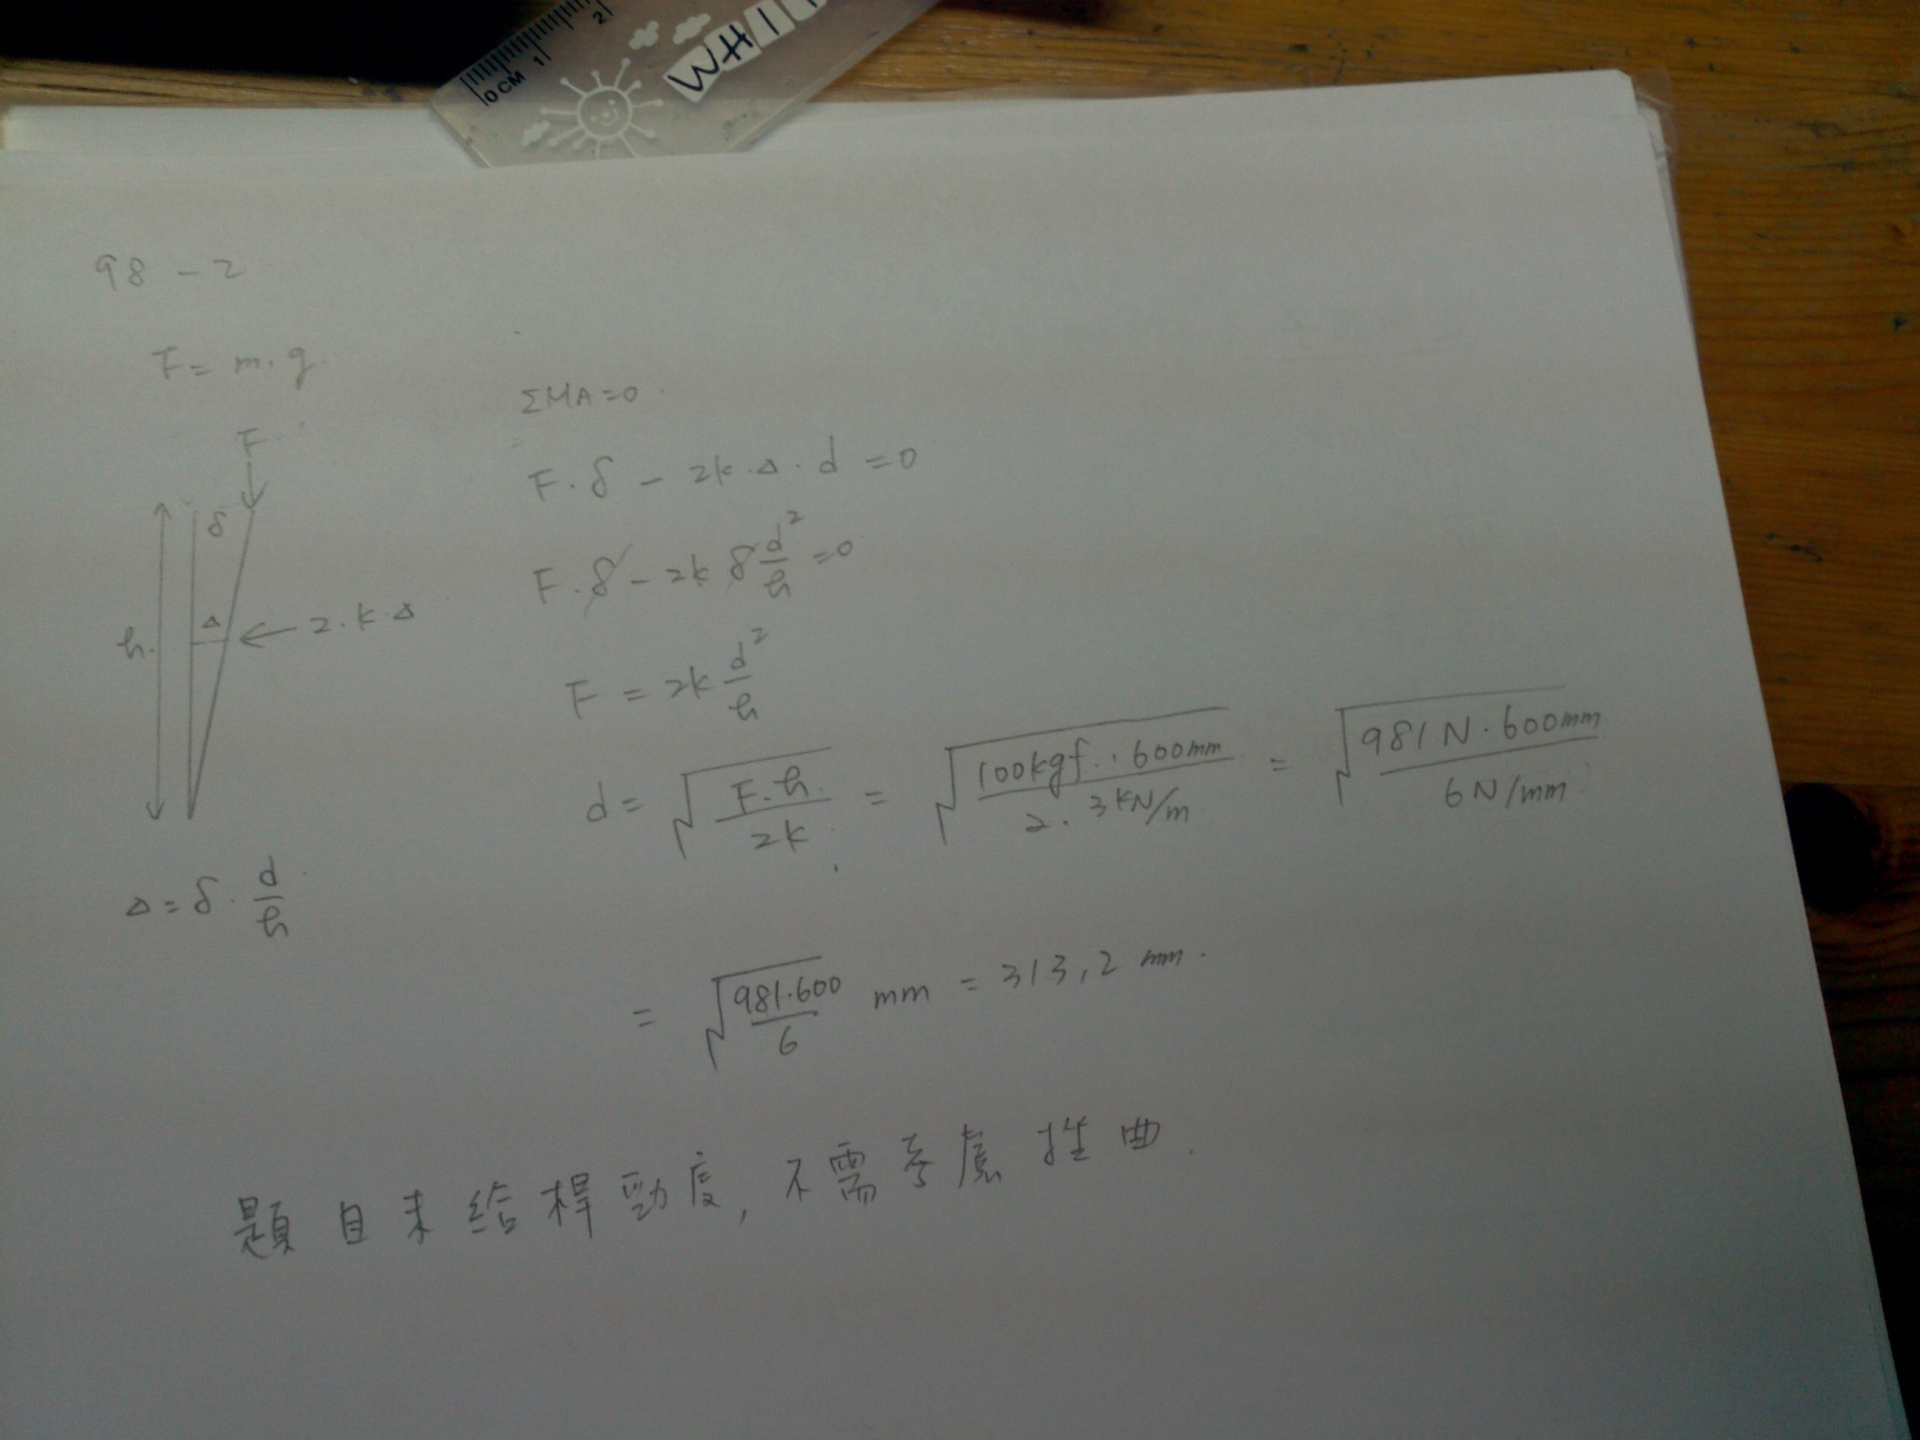 0CM 1 2
WHIT
98-2
F = m·g
F
δ
Δ ← 2·kΔ
h
Δ = δ · d/h
ΣMA=0
F·δ - 2k·Δ·d = 0
F·δ - 2k δ d²/h = 0
F = 2k d²/h
d = √(F·h/2k) = √(100kgf·600mm/2·3kN/m) = √(981N·600mm/6N/mm)
= √(981·600/6) mm = 313,2 mm.
題目未給桿勁度,不需考慮挫曲.